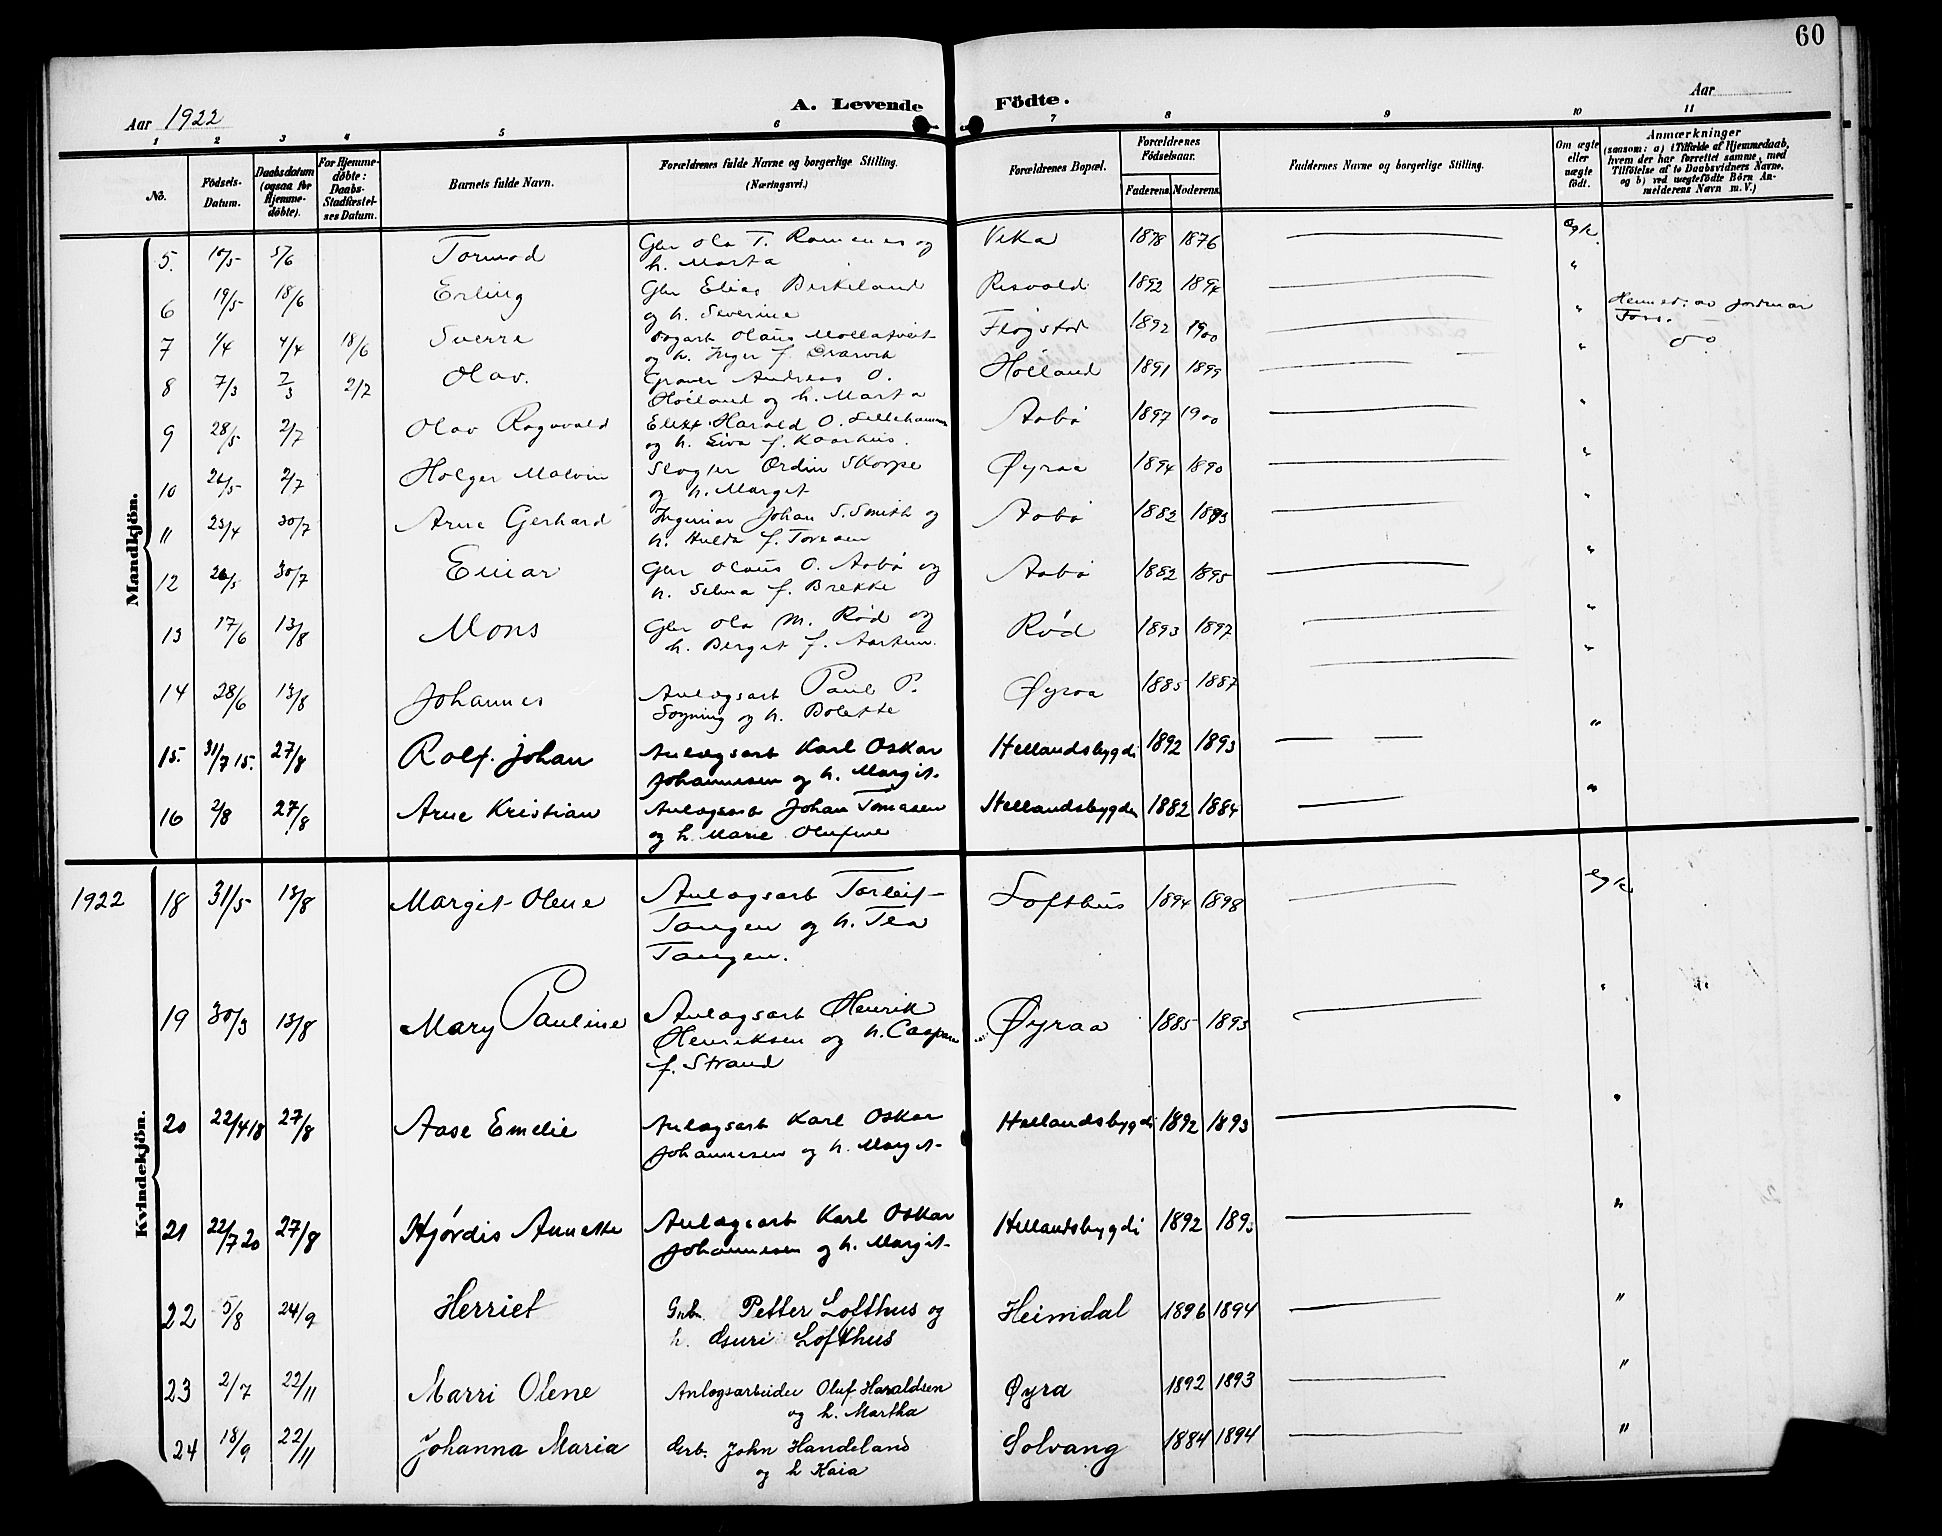 60
Aar 1922
A. Levende Födte.
Aar
1 2 3 4 5 6 7 8 9 10 11
No.
Födsels-Datum.
Daabsdatum (ogsaa for Hjemme-döbte).
For Hjemme-döbte: Daabs-Stadfæstel-ses Datum.
Barnets fulde Navn.
Forældrenes fulde Navne og borgerlige Stilling. (Næringsvei.)
Forældrenes Bopæl.
Forældrenes Födselsaar.
Faderens. Moderens.
Faddernes Navne og borgerlige Stilling.
Om ægte eller uægte födt.
Anmærkninger (saasom: a) i Tilfælde af Hjemmedaab, hvem der har forrettet samme, med Tilföielse af to Daabsvidners Navne, og b) ved uægtefödte Börn An-melderens Navn m. V.)
Mandkjön.
5. 5/6 Tormod Gbr Ola T. og Vika 1878 1876
h. Marta
6 19/5 18/6 Erling Gbr Elias Birkeland Risvold 1892 "
og h. Severine
7 1/4 4/4 18/6 Sverre Olaus Fløgstad 1892 1900 " Hjemmed. av jordmor
og h. Inger f.
8 7/3 7/3 2/7 Olav. Graver Andreas O. Høiland 1891 1899 " do
Høiland og h. Marta
9 28/5 2/7 Olav Ragnvald Harald O. Lillehammer Aabø 1897 1900 "
og h. f. Kaarhus.
10 26/5 2/7 Holger Malvin Ordin Skorpe Øyraa 1894 1890 "
og h. Marget
11 23/4 30/7 Arne Gerhard Ingeniør Johan S. Smith og Aabø 1882 1893 "
h. Hulda f.
12 26/5 30/7 Einar Gbr Olaus O. Aabø og Aabø 1882 1895 "
h. Selma f. Brekke
13 17/6 13/8 Mons Gbr Ola M. Rød og Rød 1893 1897 "
h. Berget f.
14 28/6 13/8 Johannes Anlægsarb Paul P. Øyraa 1885 1887 "
og h. Bolette
15. 31/7 15. 27/8 Rolf. Johan Anlægsarb Karl Oskar Hellandsbygdi 1892 1893 "
Johannesen og h. Margit
16 2/8 27/8 Arne Kristian Anlægsarb Johan Tomasen Hellandsbygden 1882 1884 "
og h. Marie Olufine
1922
Kvindekjön.
18 31/5 13/8 Margit Olene Anlægsarb Torleif Lofthus 1894 1898
Tangen og h. Tea
Tangen.
19 30/3 13/8 Mary Pauline Anlægsarb Henrik Øyraa 1885 1893 "
Henriksen og h.
f. Strand
20 22/4 18 27/8 Aase Emelie Anlægsarb Karl Oskar Hellandsbygdi 1892 1893 "
Johannesen og h. Marget
21 22/7 20 27/8 Hjørdis Annette Anlægsarb Karl Oskar Hellandsbygdi 1892 1893 "
Johannesen og h. Margit
22 5/8 24/9 Herriet Petter Lofthus og Heimdal 1896 1894 "
h. Guri Lofthus
23 2/7 22/11 Marri Olene Anlegsarbeider Oluf Haraldsen Øyra 1892 1893 "
og h. Martha
24 18/9 22/11 Johanna Maria John Handeland Solvang 1884 1894 "
og h Kaia